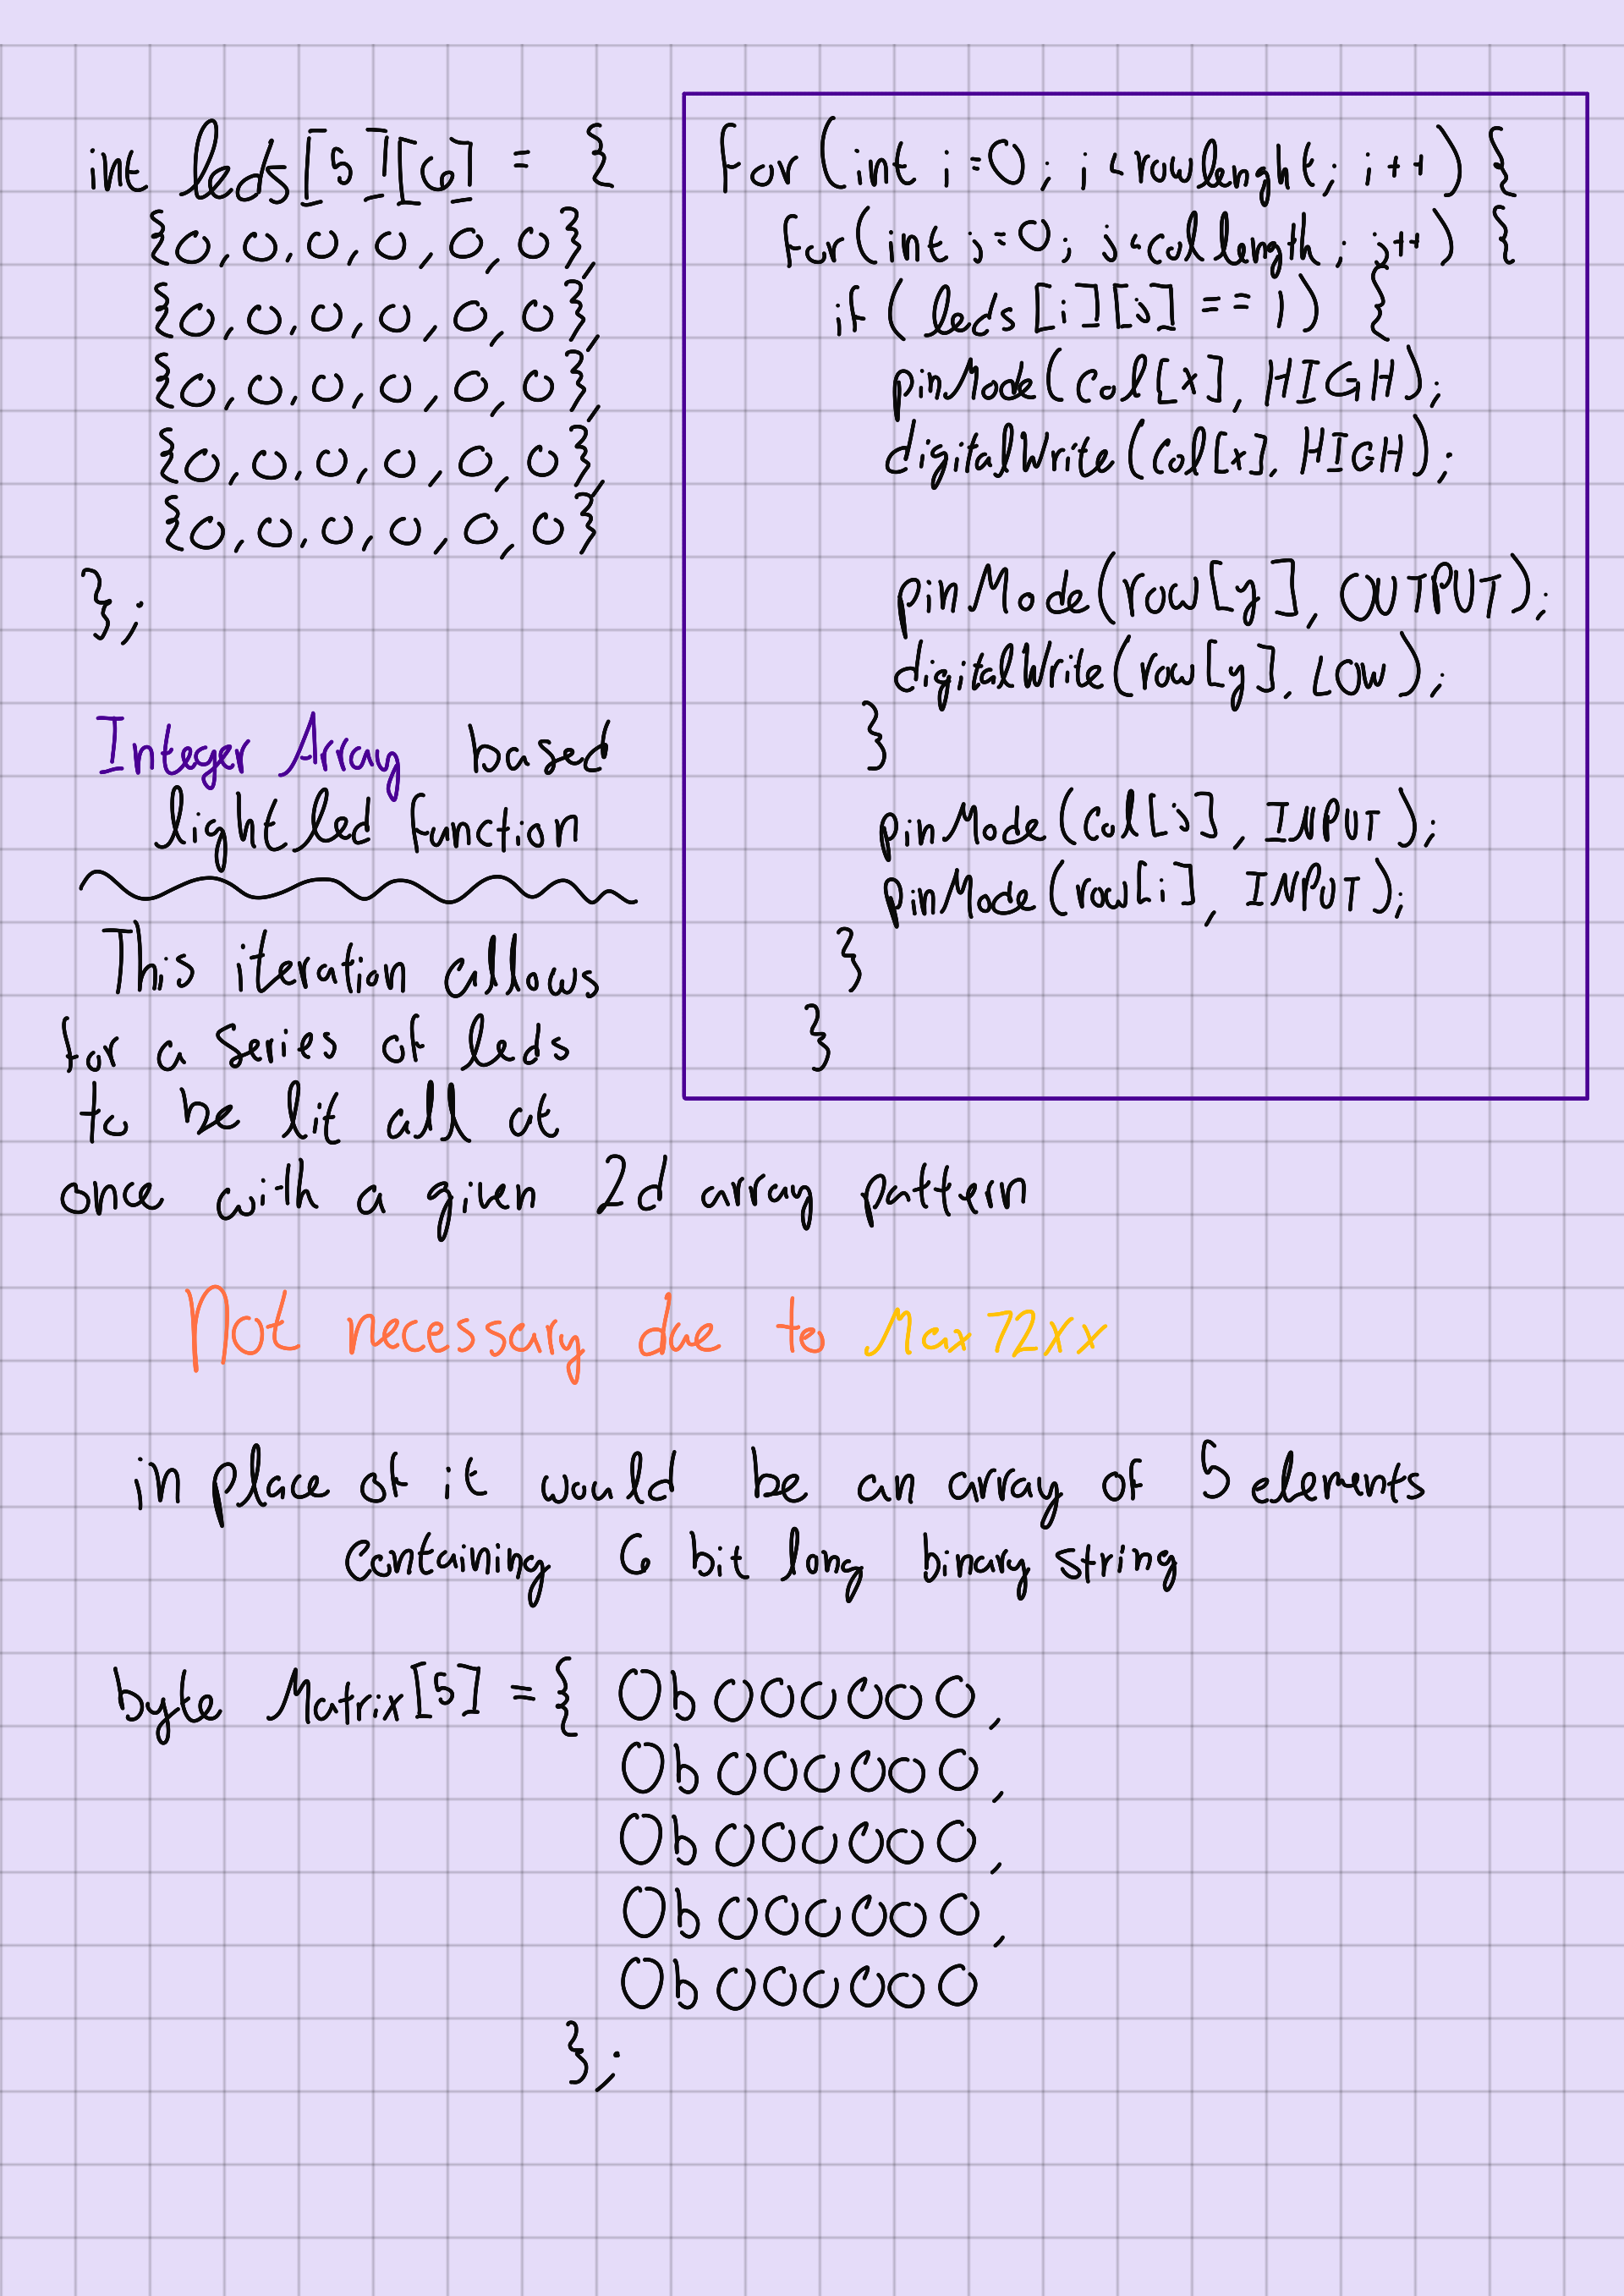 int leds[5][6] = {
{0, 0, 0, 0, 0, 0},
{0, 0, 0, 0, 0, 0},
{0, 0, 0, 0, 0, 0},
{0, 0, 0, 0, 0, 0},
{0, 0, 0, 0, 0, 0}
};
Integer Array based
light led function
This iteration allows
for a series of leds
to be lit all at
once with a given 2d array pattern
for (int i=0; i<rowlenght; i++) {
for(int j=0; j<collength; j++) {
if (leds [i][j] == 1) {
pinMode(col[x], HIGH);
digitalWrite(col[x], HIGH);
pinMode(row[y], OUTPUT);
digitalWrite(row[y], LOW);
}
pinMode(col[j], INPUT);
pinMode(row[i], INPUT);
}
}
Not necessary due to Max72xx
in place of it would be an array of 5 elements
containing 6 bit long binary string
byte Matrix[5] = { 0b000000,
0b000000,
0b000000,
0b000000,
0b000000
};